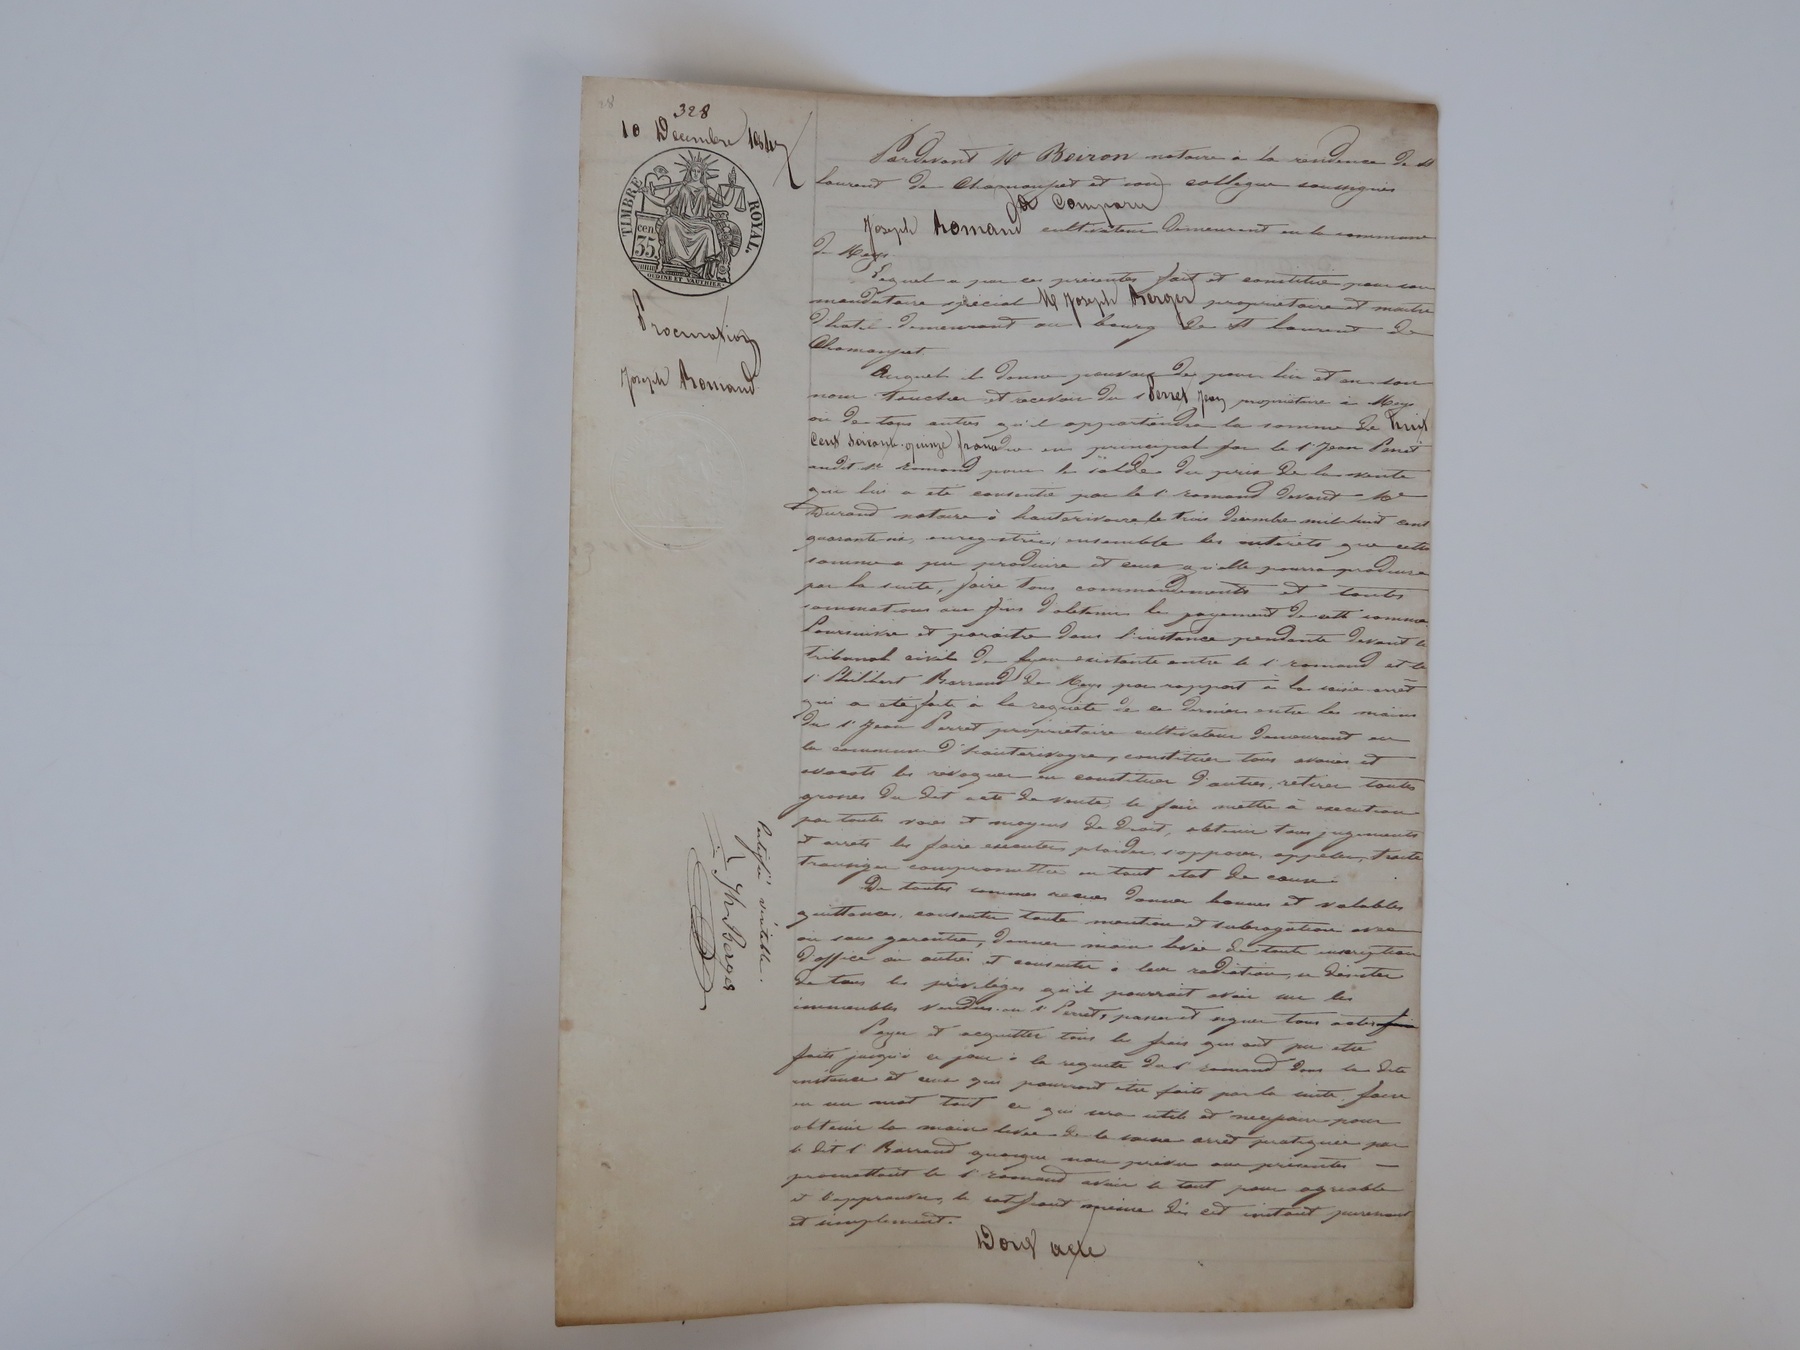 328
10 Décembre 1847
TIMBRE ROYAL.
cen. 35
OUDINÉ ET GAUTHIER.
Procuration
Joseph Romand
Pardevant Me Beiron notaire à la résidence de St
laurent de Chamousset et son collegue soussignés
a Comparu
Joseph Romand cultivateur demeurant en la commune
de Meys
Lequel a par ces présentes fait et constitué pour son
mandataire spécial Mr Joseph Berger propriétaire et maitre
d'hotel demeurant au bourg de St laurent de
Chamousset
Auquel il donne pouvoir de pour lui et en son
nom toucher et recevoir du sr Perret Jean propriétaire à Meys
ou de tous autres qu'il appartiendra la somme de huit
cent soixante-quinze francs due en principal par le sr Jean Perret
audit sr romand pour le solde du prix de la vente
que lui a été consentie par le sr romand devant Me
Durand notaire à hauterivoire le trois décembre mil huit cent
quarante six, enregistrée, ensemble les intérêts que cette
somme a pu produire et ceux qu'elle pourra produire
par la suite, faire tous commandements et toutes
sommations aux fins d'obtenir le payement de cette somme
Poursuivre et paraitre dans l'instance pendante devant le
tribunal civil de lyon existante entre le sr romand et le
sr Philibert Barraud de Meys par rapport à la saisie arrêt
qui a été faite à la requête de ce dernier entre les mains
du sr Jean Perret propriétaire cultivateur demeurant en
la commune d'hauterivoyre, constituer tous avoués et
avocats les révoquer en constituer d'autres, retirer toutes
grosses du dit acte de vente, le faire mettre à exécution
par toutes voies et moyens de droit, obtenir tous jugements
et arrets les faire executer plaider, s'opposer, appeler, traiter
transiger compromettre en tout etat de cause
De toutes sommes recues donner bonnes et valables
quittances, consentir toute mention et subrogation avec
ou sans garantie, donner main levée de toute inscription
d'office ou autres et consentir à leur radiation, se désister
de tous les privilèges qu'il pourrait avoir sur les
immeubles vendus au sr Perret, passer et signer tous actes
Payer et acquitter tous les frais qui ont pu etre
faits jusqu'à ce jour à la requete du sr romand dans la dite
instance et ceux qui pourront etre faits par la suite, faire
en un mot tout ce qui sera utile et necessaire pour
obtenir la main levée de la saisie arrêt pratiquée par
le dit sr Barraud quoique non prévu aux présentes
promettant le sr romand avoir le tout pour agréable
et l'approuver, le ratifiant même dès cet instant purement
et simplement.
Dont acte
Certifié véritable.
Jh Berger